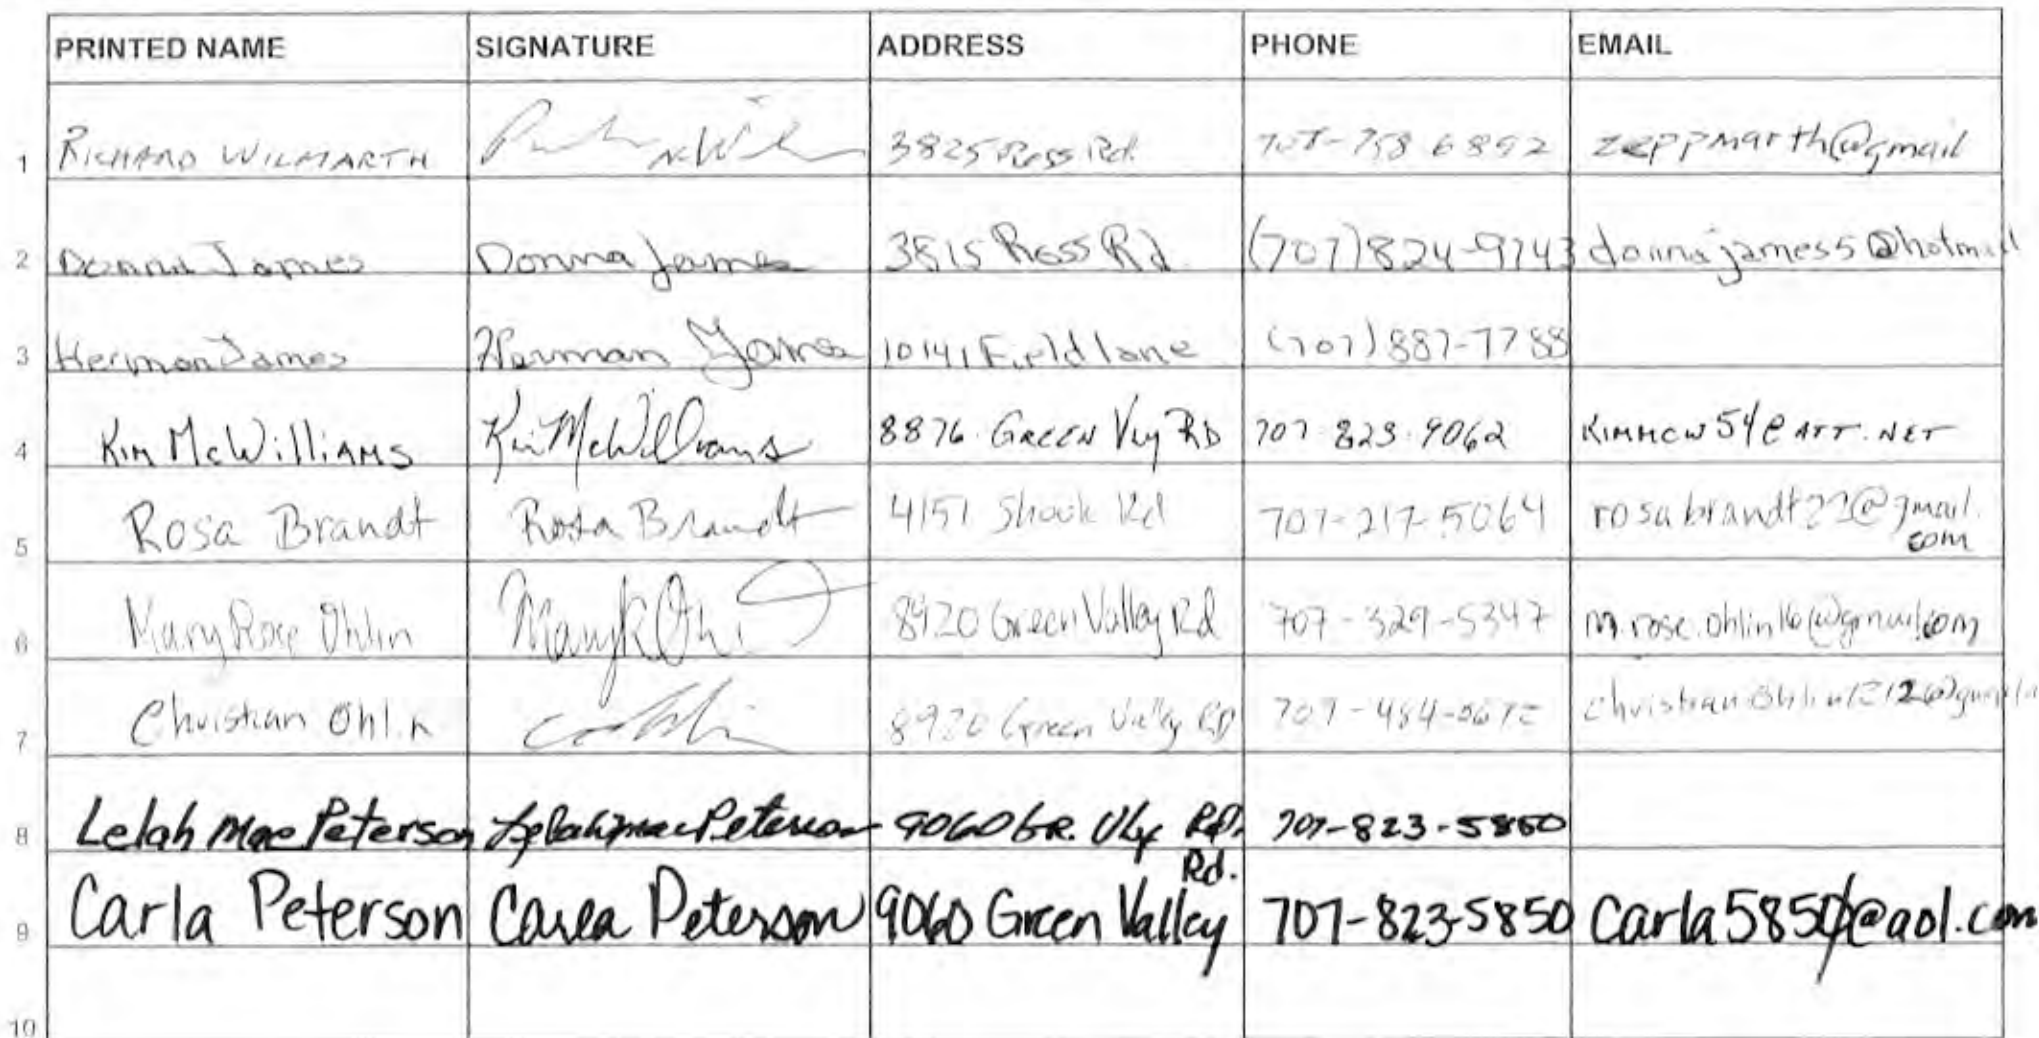 PRINTED NAME SIGNATURE ADDRESS PHONE EMAIL
1 RICHARD WILMARTH 3825 Ross Rd. zeppmarth@gmail
2 Donna James Donna James 3815 Ross Rd (707)824-9743 donnajames5@hotmail
3 Herman James Herman James 10141 Field lane (707)887-7788
4 Kim McWilliams Kim McWilliams 8876 GREEN Vly RD 707 823 9062 KIMMCW54@ATT.NET
5 Rosa Brandt Rosa Brandt 4151 Shook Rd 707-217-5064 rosabrandt22@gmail.
com
6 Mary Rose Ohlin 8920 Green Valley Rd 707-329-5347 m.rose.ohlin16@gmail.com
7 Christian Ohlin 8920 Green Valley RD
8 Lelah Mae Peterson Lelah mae Peterson 9060 GR. Vly Rd. 707-823-5850
Rd.
9 Carla Peterson Carla Peterson 9060 Green Valley 707-823-5850 Carla5850@aol.com
10